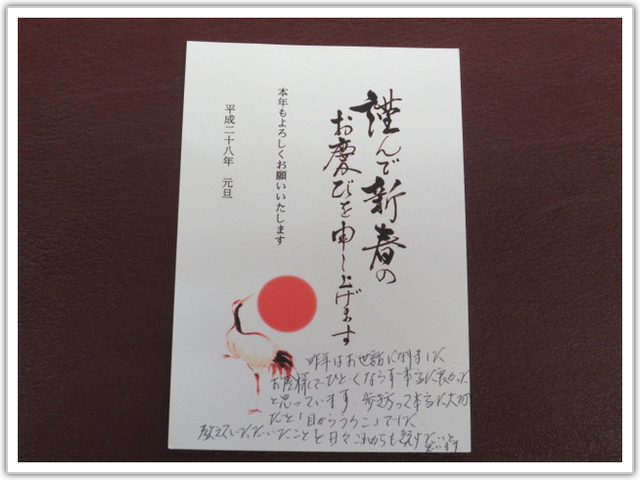 謹んで新春の
お慶びを申し上げます
本年もよろしくお願いいたします
平成二十八年 元旦
昨年はお世話になりました。
お陰様でひどくならず本当に良かった
と思っています。歩き方って本当に大切
だと「目からうろこ」でした。
教えていただいたことを日々これからも続けたいと
思います